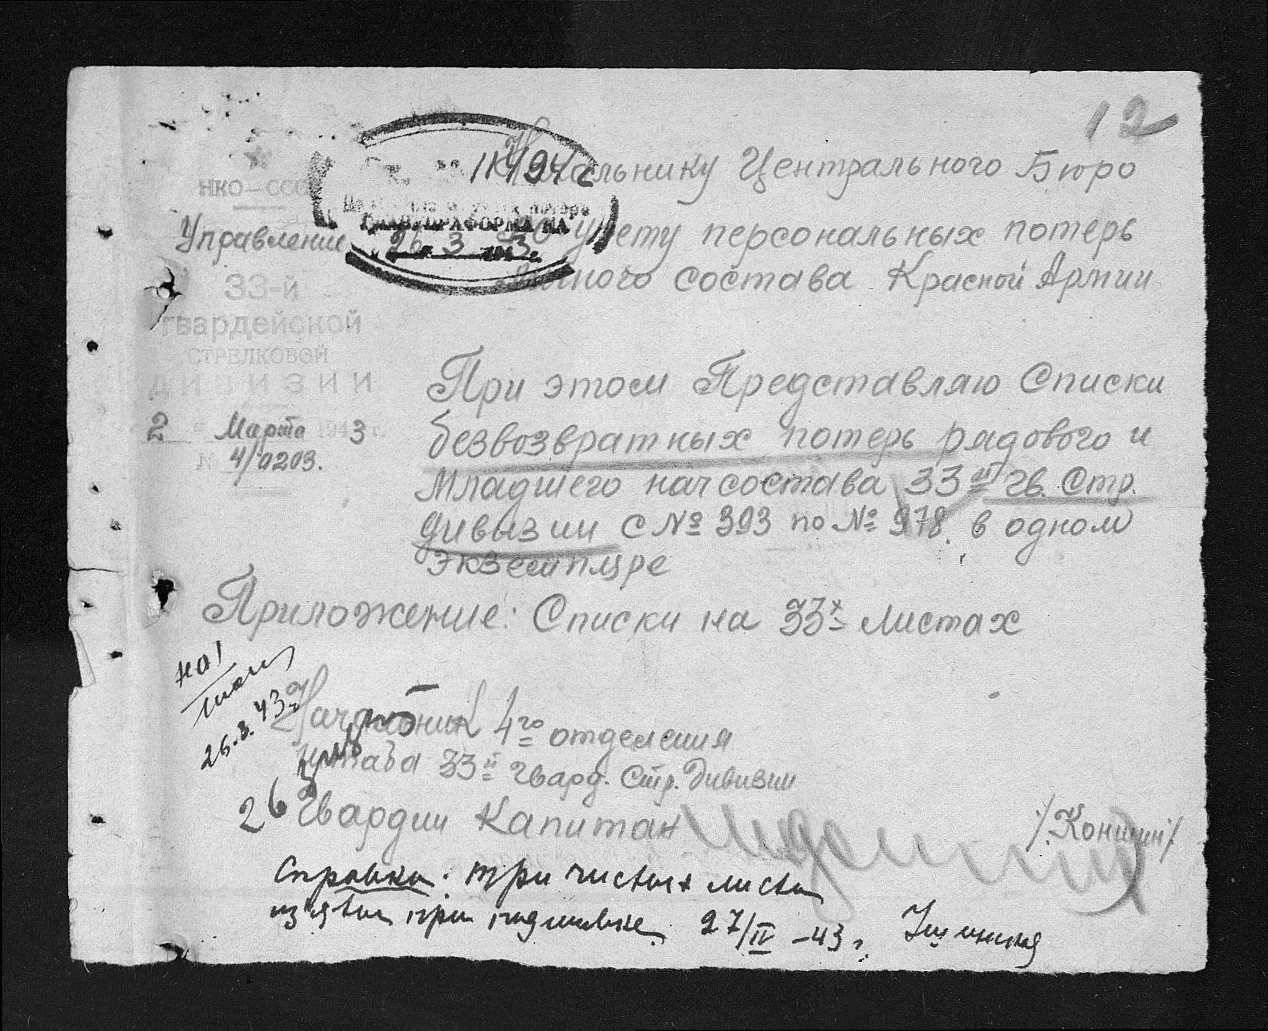 12
НКО-СССР
Управление
33-й
гвардейской
СТРЕЛКОВОЙ
ДИВИЗИИ
2 Марта 1943 г.
№ 4/0203.
11494с
26 3 1943г.
Начальнику Центрального Бюро
по учету персональных потерь
личного состава Красной Армии
При этом Представляю Списки
безвозвратных потерь рядового и
Младшего начсостава 33й гв. Стр.
дивызии с № 393 по № 978. в одном
экземпляре
Приложение: Списки на 33х листах
26.3.43г.
Начальник 4го отделения
штаба 33й гвард. Стр. Дивизии
26
Гвардии Капитан /.Конинин/
Справка: три чистых листа
из'яты при подшивке 27/IV-43г.